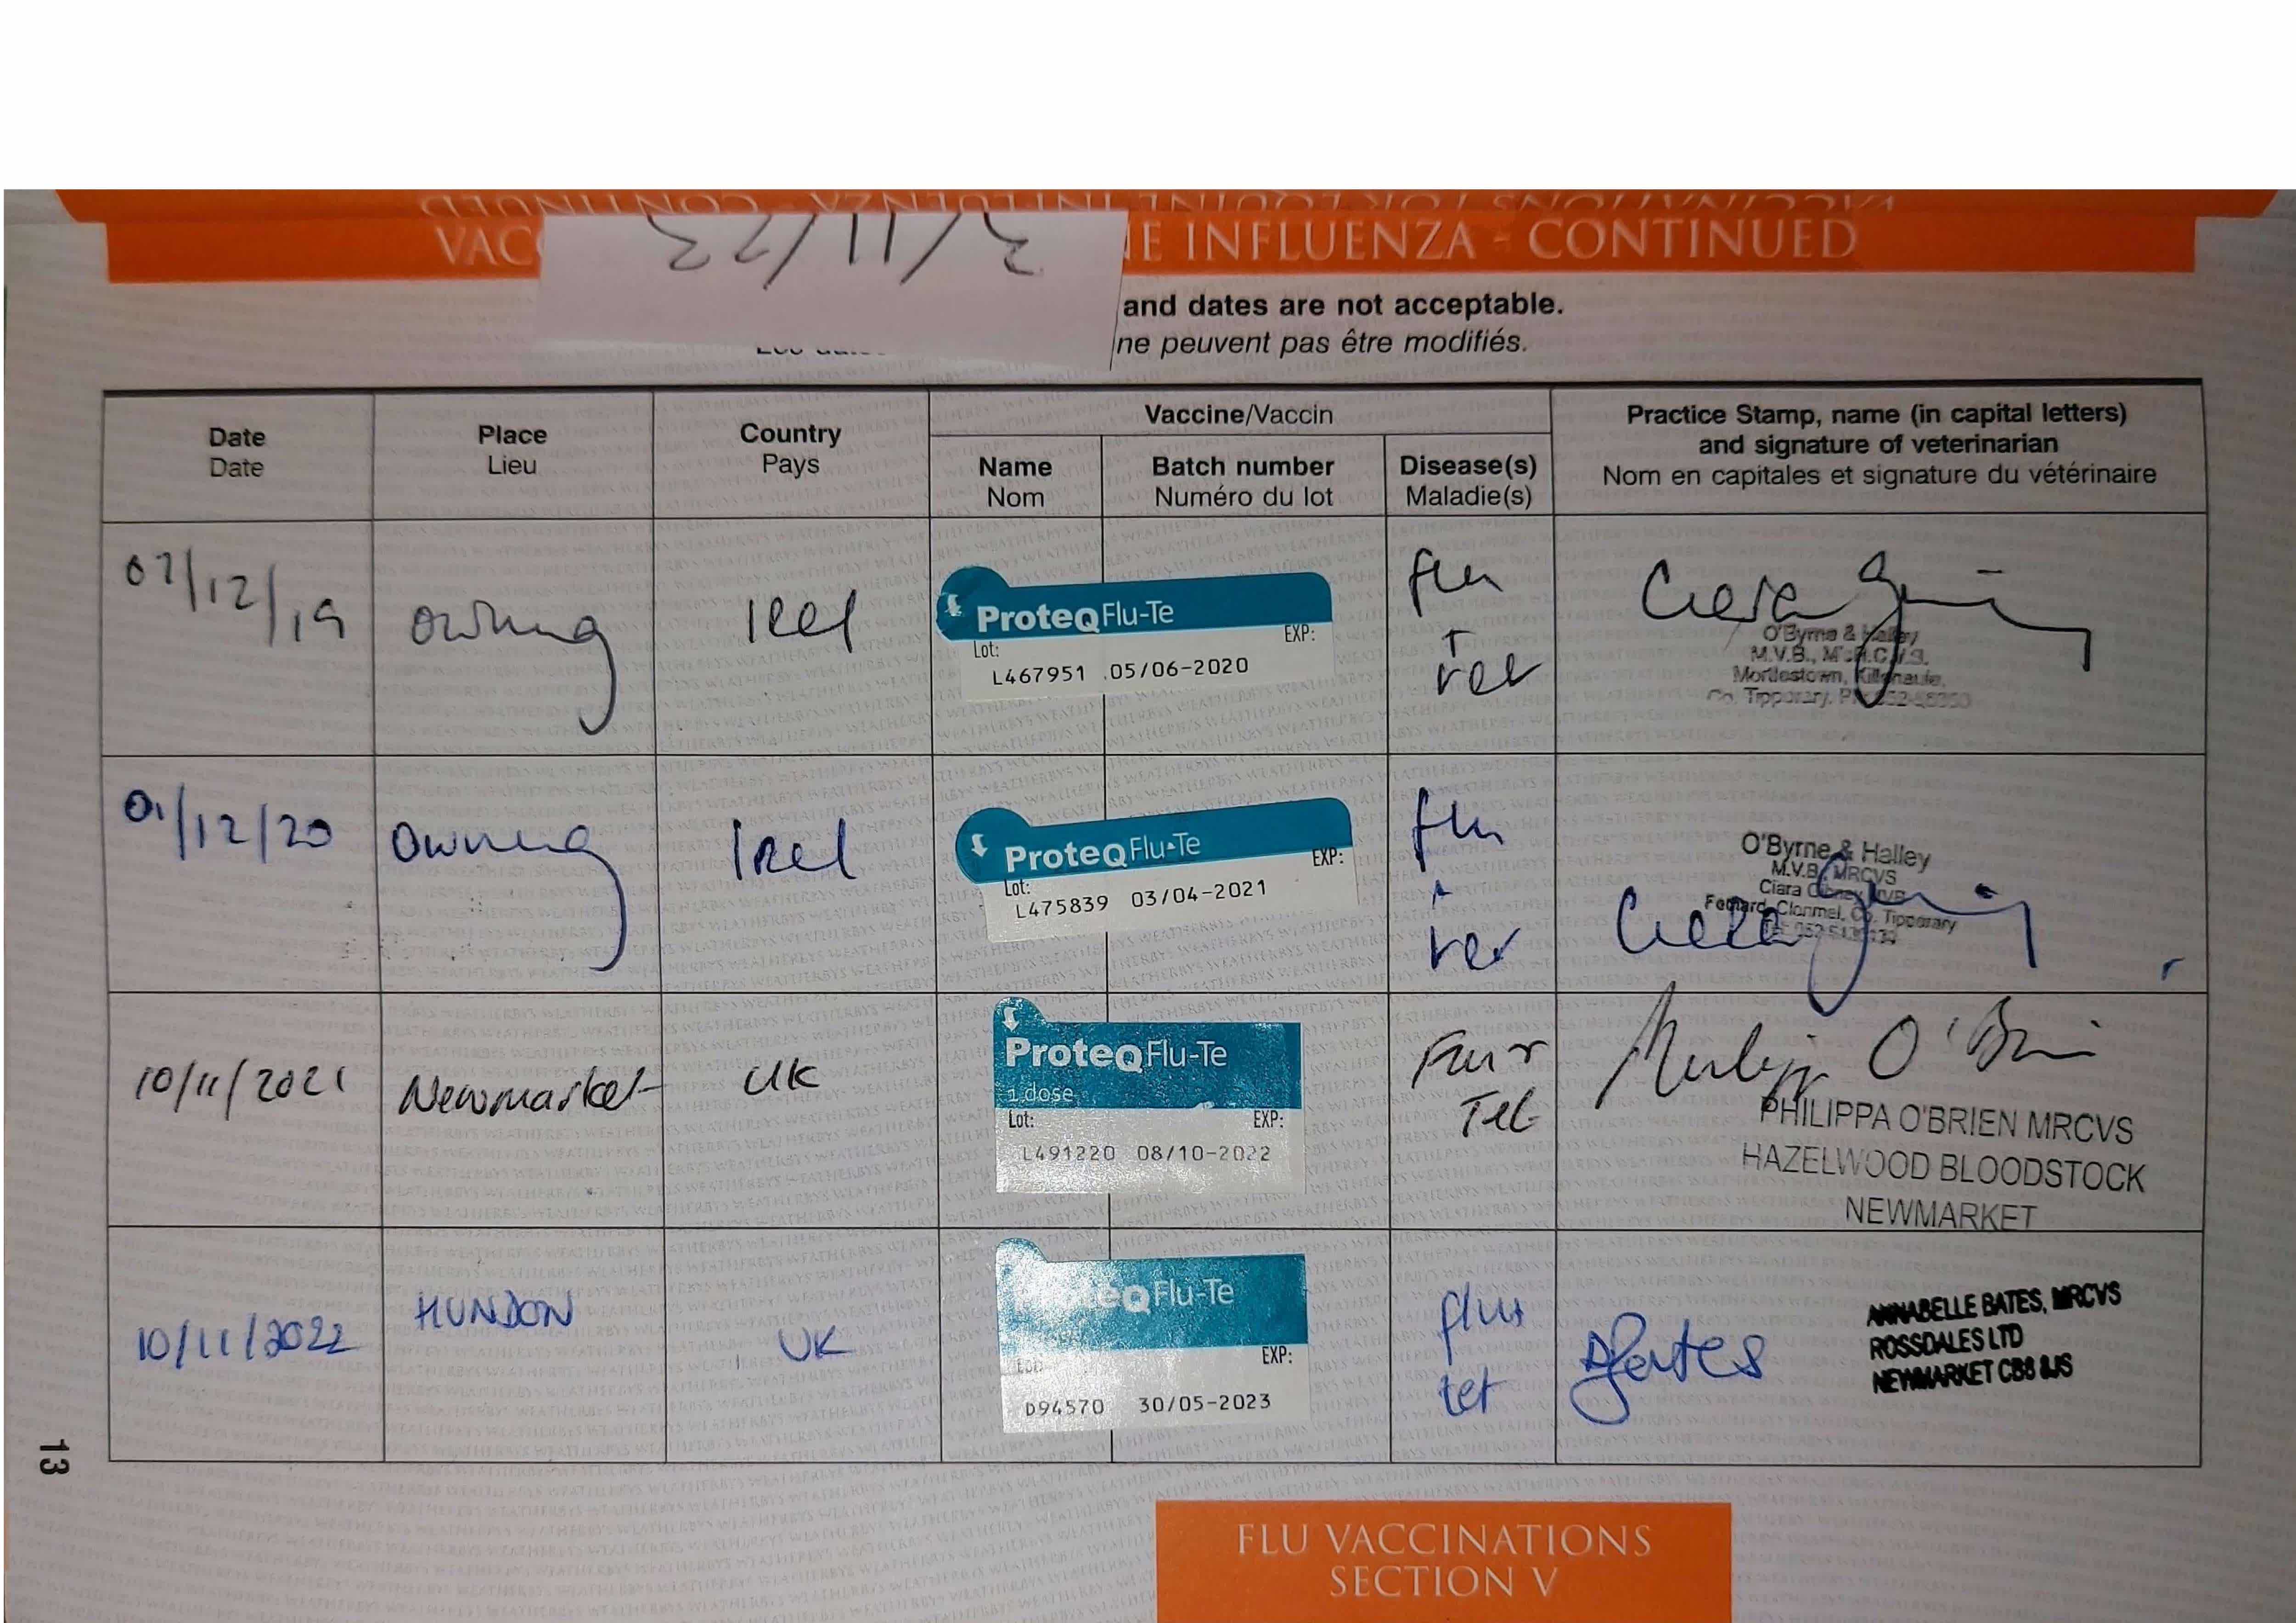 VACCINATIONS FOR EQUINE INFLUENZA - CONTINUED
VAC
NE INFLUENZA - CONTINUED
3/11/23
and dates are not acceptable.
ne peuvent pas être modifiés.
Date
Date
Place
Lieu
Country
Pays
Vaccine/Vaccin
Name
Nom
Batch number
Numéro du lot
Disease(s)
Maladie(s)
Practice Stamp, name (in capital letters)
and signature of veterinarian
Nom en capitales et signature du vétérinaire
07/12/19
Owning
Irel
ProteqFlu-Te
Lot: EXP:
L467951 05/06-2020
flu
+
tet
O'Byrne & Halley
M.V.B., M.R.C.V.S.
Mortlestown, Killenaule,
Co. Tipperary.
01/12/20
Owning
Irel
ProteqFlu-Te
Lot: EXP:
L475839 03/04-2021
flu
+
tet
O'Byrne & Halley
M.V.B. MRCVS
Ciara
Fethard, Clonmel, Co. Tipperary
10/11/2021
Newmarket
UK
ProteqFlu-Te
1 dose
Lot: EXP:
L491220 08/10-2022
Flu +
Tet
Philippa O'Brien
PHILIPPA O'BRIEN MRCVS
HAZELWOOD BLOODSTOCK
NEWMARKET
10/11/2022
HUNDON
UK
ProteqFlu-Te
Lot: EXP:
D94570 30/05-2023
flu+
tet
ABates
ANNABELLE BATES, MRCVS
ROSSDALES LTD
NEWMARKET CB8 8JS
13
FLU VACCINATIONS
SECTION V